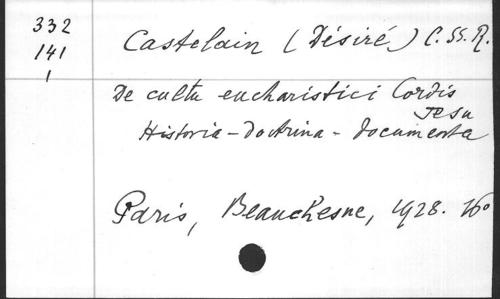 332
141
1
Castelain (Désiré) C.SS.R.
De cultu eucharistici Cordis
Jesu
Historia - Doctrina - Documenta
Paris, Beauchesne, 1928. 16o